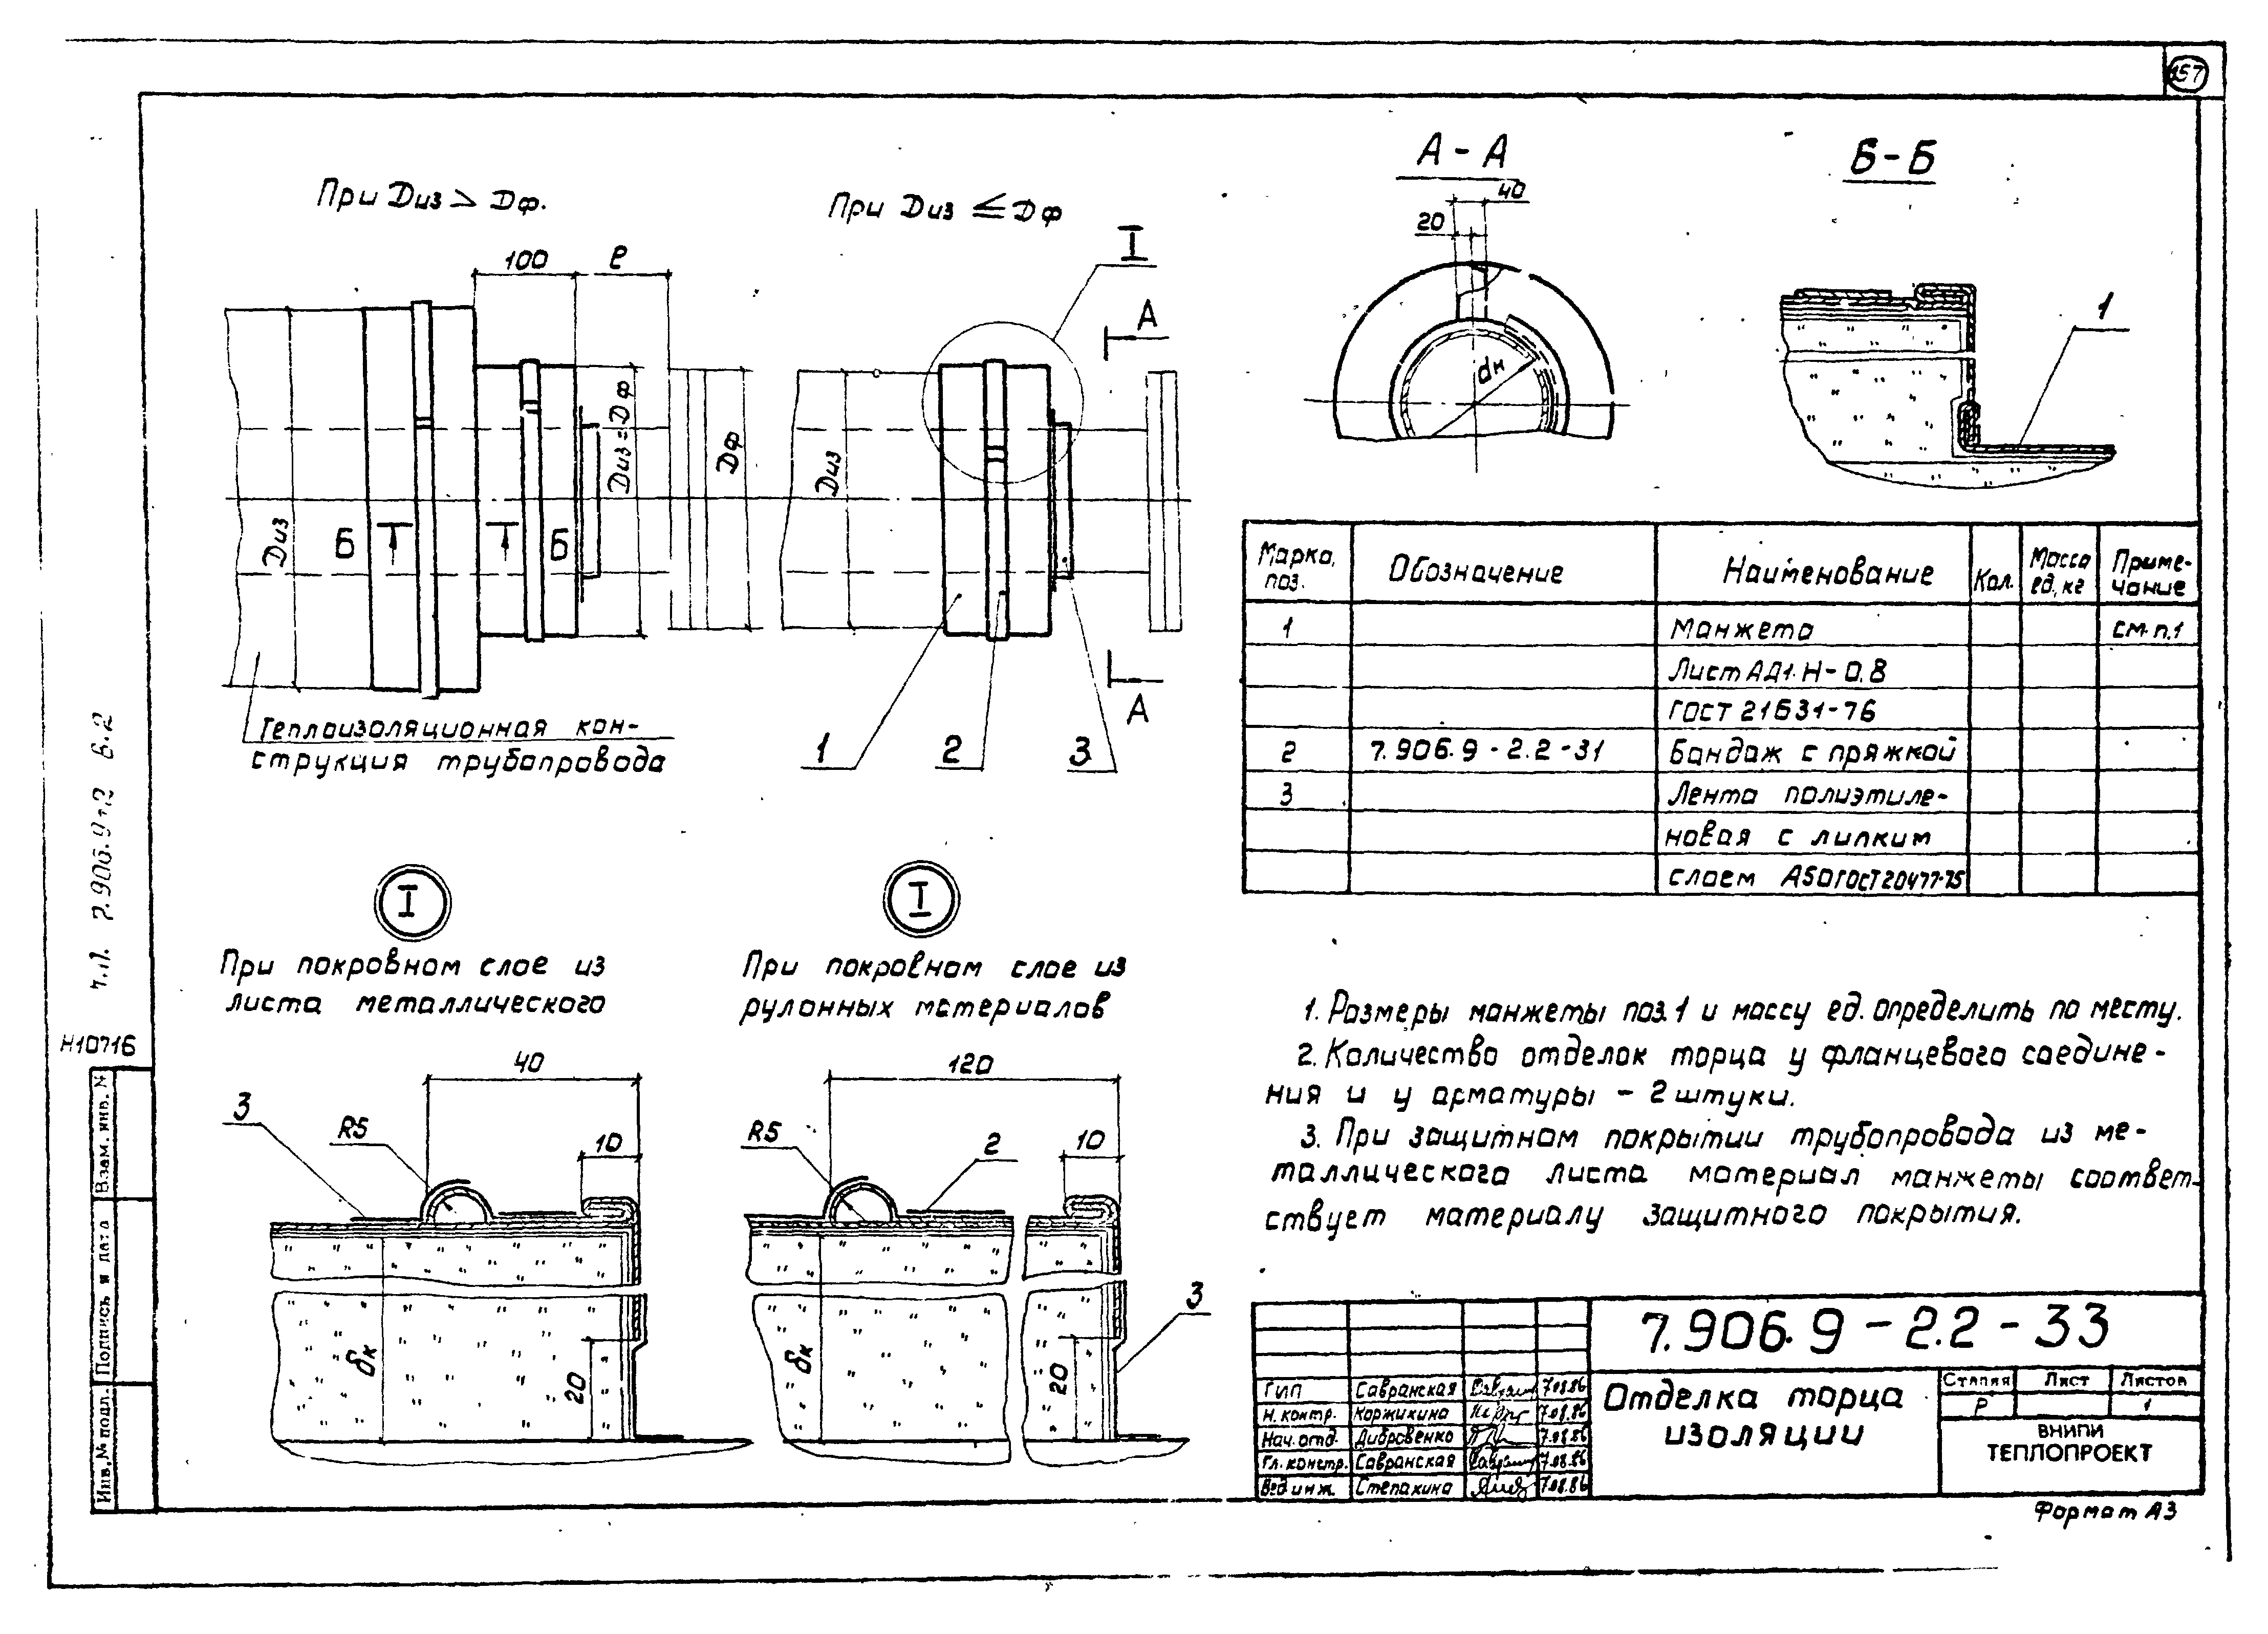 157
При Диз > Дф.
При Диз ≤ Дф
А - А
Б - Б
40
20
dн
1
100
ℓ
I
А
А
Диз
Диз=Дф
Дф
Диз
Б
Б
Теплоизоляционная кон-
струкция трубопровода
1
2
3
Марка, поз.
Обозначение
Наименование
Кол.
Масса ед, кг
Приме-чание
1 Манжета см. п.1
Лист АД1.Н-0,8
ГОСТ 21631-76
2 7.906.9-2.2-31 Бандаж с пряжкой
3 Лента полиэтиле-
новая с липким
слоем А50 ГОСТ 20477-75
I
При покровном слое из
листа металлического
40
3
R5
10
δк
20
I
При покровном слое из
рулонных материалов
120
R5
2
10
3
δк
20
1. Размеры манжеты поз.1 и массу ед. определить по месту.
2. Количество отделок торца у фланцевого соедине-
ния и у арматуры - 2 штуки.
3. При защитном покрытии трубопровода из ме-
таллического листа материал манжеты соответ-
ствует материалу защитного покрытия.
7.906.9-2.2-33
Отделка торца
изоляции
Стадия Лист Листов
Р 1
ВНИПИ
ТЕПЛОПРОЕКТ
ГИП Савранская 7.08.86
Н. контр. Коржикина 7.08.86
Нач. отд. Дибровенко 7.08.86
Гл. констр. Савранская 7.08.86
Вед инж. Степакина 7.08.86
Формат А3
7.906.9-2 в.2
Н10716
Взам. инв. №
Подпись и дата
Инв. № подл.